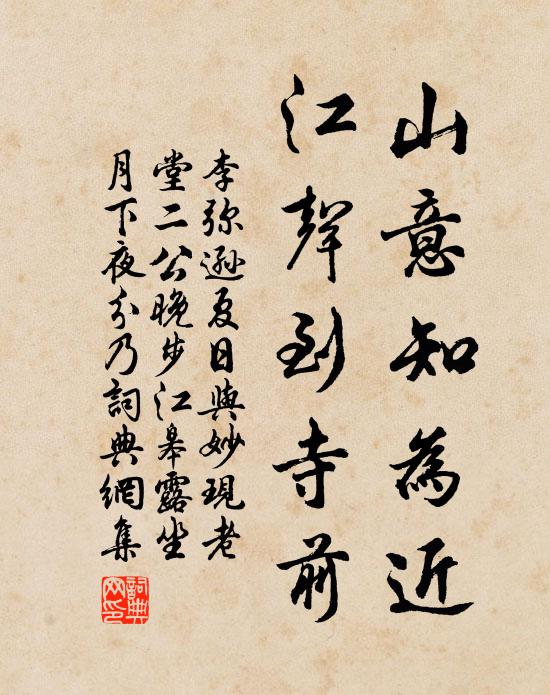 山意知為近
江聲到寺前
李弥遜夏日與妙現老
堂二公晚步江皋露坐
月下夜分乃詞典網集
詞典网印